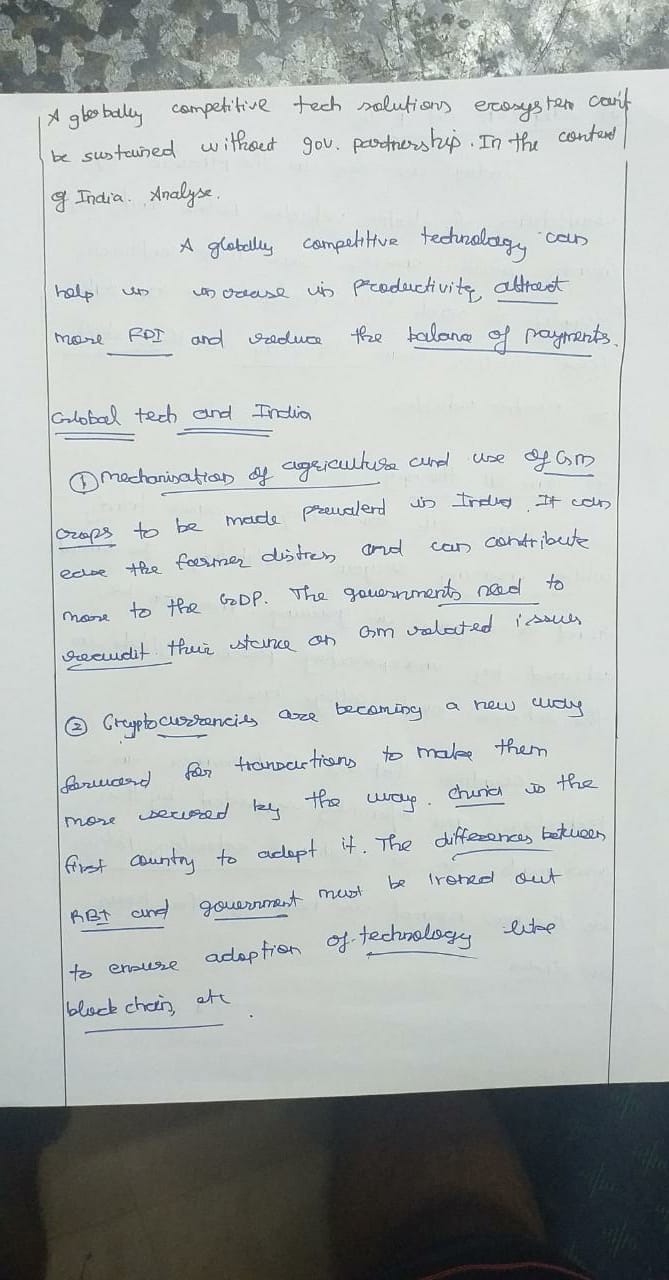 A globally competitive tech solutions ecosystem can't
be sustained without gov. partnership. In the context
of India. Analyse.
A globally competitive technology can
help in increase in productivity, attract
more FDI and reduce the balance of payments.
Global tech and India
① Mechanisation of agriculture and use of GM
crops to be made prevalent in India. It can
ease the farmer distress and can contribute
more to the GDP. The governments need to
reaudit their stance on GM related issues
② Cryptocurrencies are becoming a new way
forward for transactions to make them
more secured by the way. China is the
first country to adopt it. The differences between
RBI and government must be ironed out
to ensure adoption of technology like
block chain, etc.